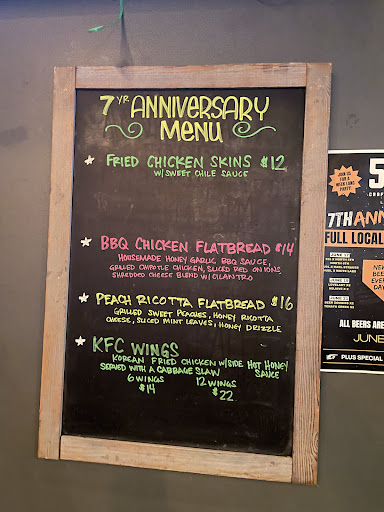 7 YR ANNIVERSARY
MENU
FRIED CHICKEN SKINS $12
W/ SWEET CHILE SAUCE
BBQ CHICKEN FLATBREAD $14
HOUSEMADE HONEY GARLIC BBQ SAUCE,
GRILLED CHIPOTLE CHICKEN, SLICED RED ONIONS
SHREDDED CHEESE BLEND W/ CILANTRO
PEACH RICOTTA FLATBREAD $16
GRILLED SWEET PEACHES, HONEY RICOTTA
CHEESE, SLICED MINT LEAVES, HONEY DRIZZLE
KFC WINGS
KOREAN FRIED CHICKEN W/SIDE HOT HONEY
SAUCE
SERVED WITH A CABBAGE SLAW
6 WINGS 12 WINGS
$14 $22
JOIN US
FOR A
WEEK LONG
PARTY
5
7TH ANN
FULL LOCAL
NEW
BEER
EVER
DAY
ALL BEERS ARE
JUNE
PLUS SPECIAL